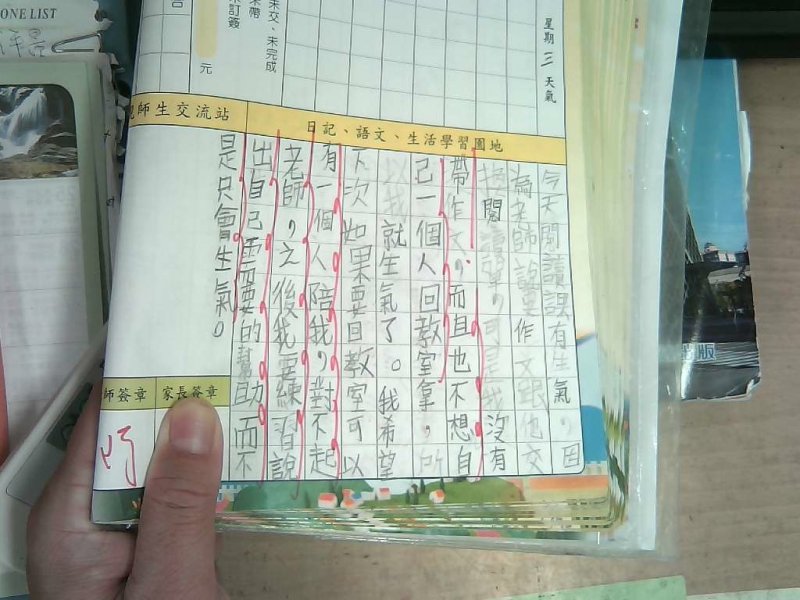 ONE LIST
星期三 天氣
未交、未完成
未帶
未訂簽
元
師生交流站
日記、語文、生活學習園地
今天閱讀課有生氣,因
為老師說要作文跟他交
換閱讀單,可是我沒有
帶作文,而且也不想自
己一個人回教室拿,所
以我就生氣了。我希望
下次如果要回教室可以
有一個人陪我,對不起
老師,之後我要練習說
出自己需要的幫助而不
是只會生氣。
師簽章
家長簽章
版